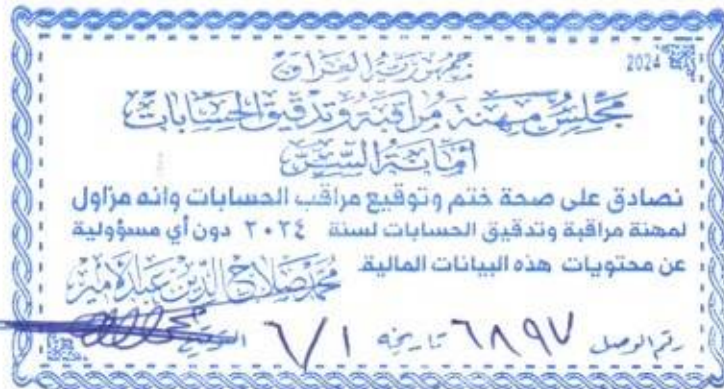 2024
جمهورية العراق
مجلس مهنة مراقبة وتدقيق الحسابات
أمانة السر
نصادق على صحة ختم وتوقيع مراقب الحسابات وانه مزاول
لمهنة مراقبة وتدقيق الحسابات لسنة ٢٠٢٤ دون أي مسؤولية
عن محتويات هذه البيانات المالية
محمد صلاح الدين عبد الامير
رقم الوصل ٦٨٩٧ تاريخه ٦/١ التوقيع